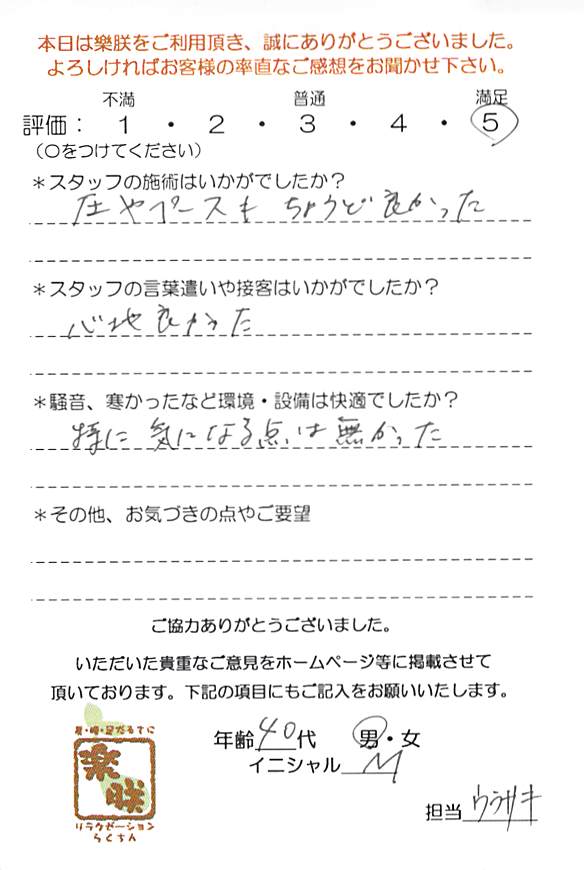 本日は樂朕をご利用頂き、誠にありがとうございました。
よろしければお客様の率直なご感想をお聞かせ下さい。
不満 普通 満足
評価： 1 ・ 2 ・ 3 ・ 4 ・ 5
（〇をつけてください）
＊スタッフの施術はいかがでしたか？
圧やペースも ちょうど良かった
＊スタッフの言葉遣いや接客はいかがでしたか？
心地良かった
＊騒音、寒かったなど環境・設備は快適でしたか？
特に気になる点は無かった
＊その他、お気づきの点やご要望
ご協力ありがとうございました。
いただいた貴重なご意見をホームページ等に掲載させて
頂いております。下記の項目にもご記入をお願いいたします。
年齢 40 代 男・女
イニシャル M
担当 ウラサキ
楽朕
リラクゼーション
らくちん